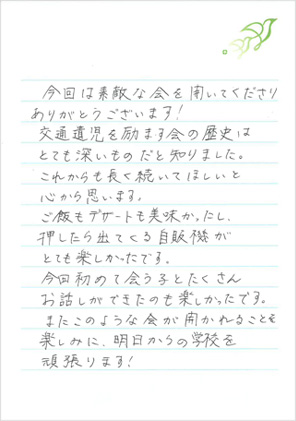 今回は素敵な会を開いてくださり
ありがとうございます!
交通遺児を励ます会の歴史は
とても深いものだと知りました。
これからも長く続いてほしいと
心から思います。
ご飯もデザートも美味かったし、
押したら出てくる自販機が
とても楽しかったです。
今回初めて会う子とたくさん
お話しができたのも楽しかったです。
またこのような会が開かれることを
楽しみに、明日からの学校を
頑張ります!